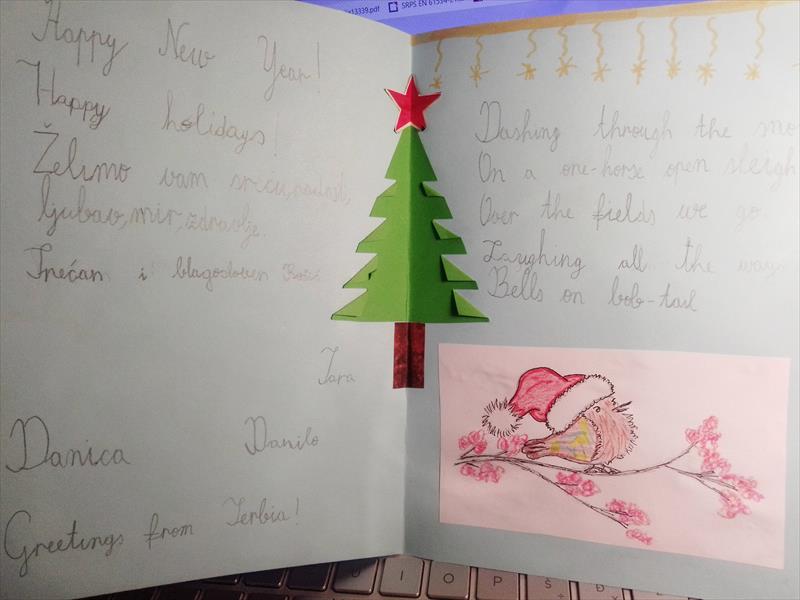 13339.pdf
SRPS EN
Happy New Year!
Happy holidays!
Želimo vam sreću, radost,
ljubav, mir, zdravlje.
Srećan i blagosloven Božić
Tara
Danica Danilo
Greetings from Serbia!
Dashing through the sno
On a one-horse open sleigh
Over the fields we go
Laughing all the way
Bells on bob-tail
U I O P Š Đ